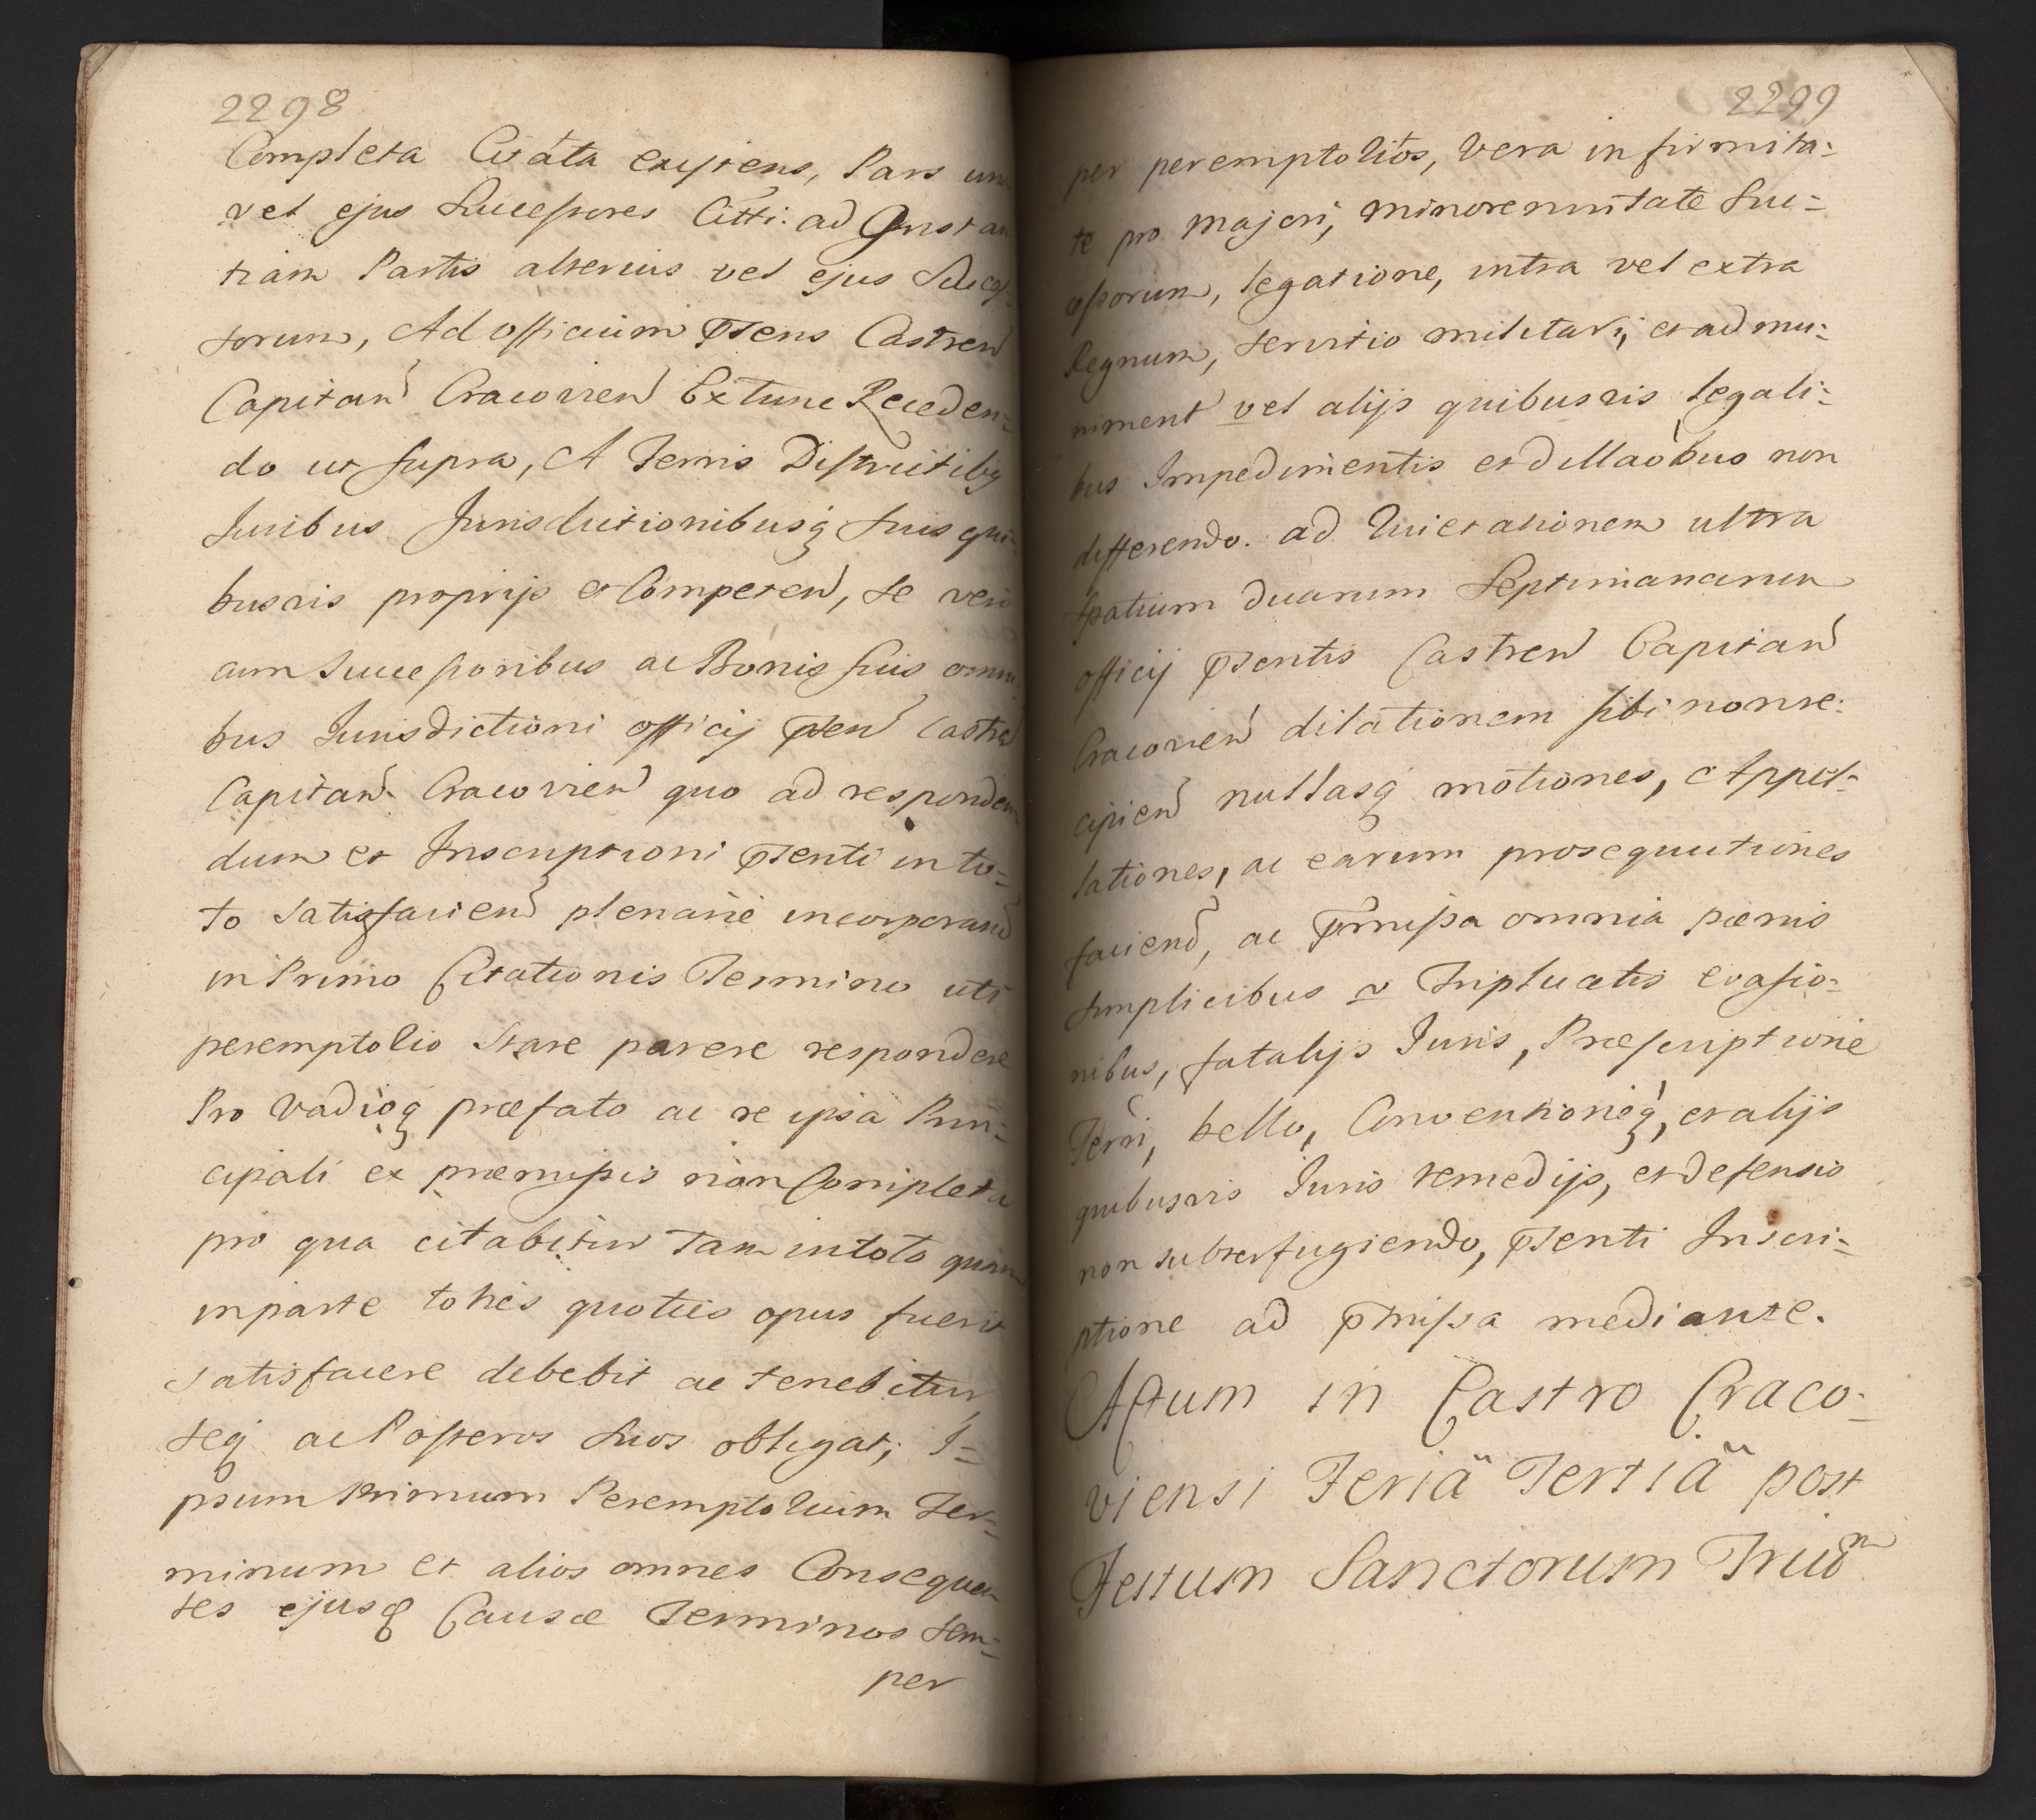 2298
Completa Citata existens, Pars una
vel ejus Successores Citti: ad Instan
tiam Partis alterius vel ejus Succes-
sorum, Ad officium Psens Castren
Capitan Cracovien Extunc Receden=
do ut supra, A Terris Districtibq
Juribus Jurisdictionibusq suis qui-
busvis proprijs et Competen, se vero
cum Successoribus ac Bonis suis omni-
bus Jurisdictioni officij Psen Castren
Capitan Cracovien quo ad responden
dum et Inscriptioni Psenti in to=
to satisfacien plenarie incorporand
in Primo Citationis Termino uti
peremptorio Stare parere respondere
Pro Vadioq præfato ac re ipsa Prin=
cipali ex præmissis non Completa
pro qua citabitur Tam in toto quam
in parte toties quoties opus fuerit
satisfacere debebit ac tenebitur
seq ac Posteros suos obligat, I=
psum Primum Peremptorium Ter=
minum et alios omnes Consequen
tes ejusq Causæ Terminos sem=
per
2299
per peremptorios, vera infirmita=
te pro majori, minorennitate Suc=
cessorum, legatione, intra vel extra
Regnum, servitio militari, et ad mu=
niment vel alijs quibusvis legali=
bus Impedimentis et dillaobus non
differendo. ad Quietationem ultra
spatium duarum Septimanarum
officij Psentis Castren Capitan
Cracovien dilationem sibi non re=
cipien nullasq motiones, Appel=
lationes, ac earum prosequutiones
faciend, ac Prmissa omnia pænis
simplicibus v Triplicatis evasio=
nibus, fatalijs Juris, Præscriptione
Terri, bello, Conventioneq, et alijs
quibusvis Juris remedijs, et defensis
non subterfugiendo, Psenti Inscri=
ptione ad Pmissa mediante.
Actum in Castro Craco=
viensi Feriâ Tertiâ post
Festum Sanctorum Triu͂m